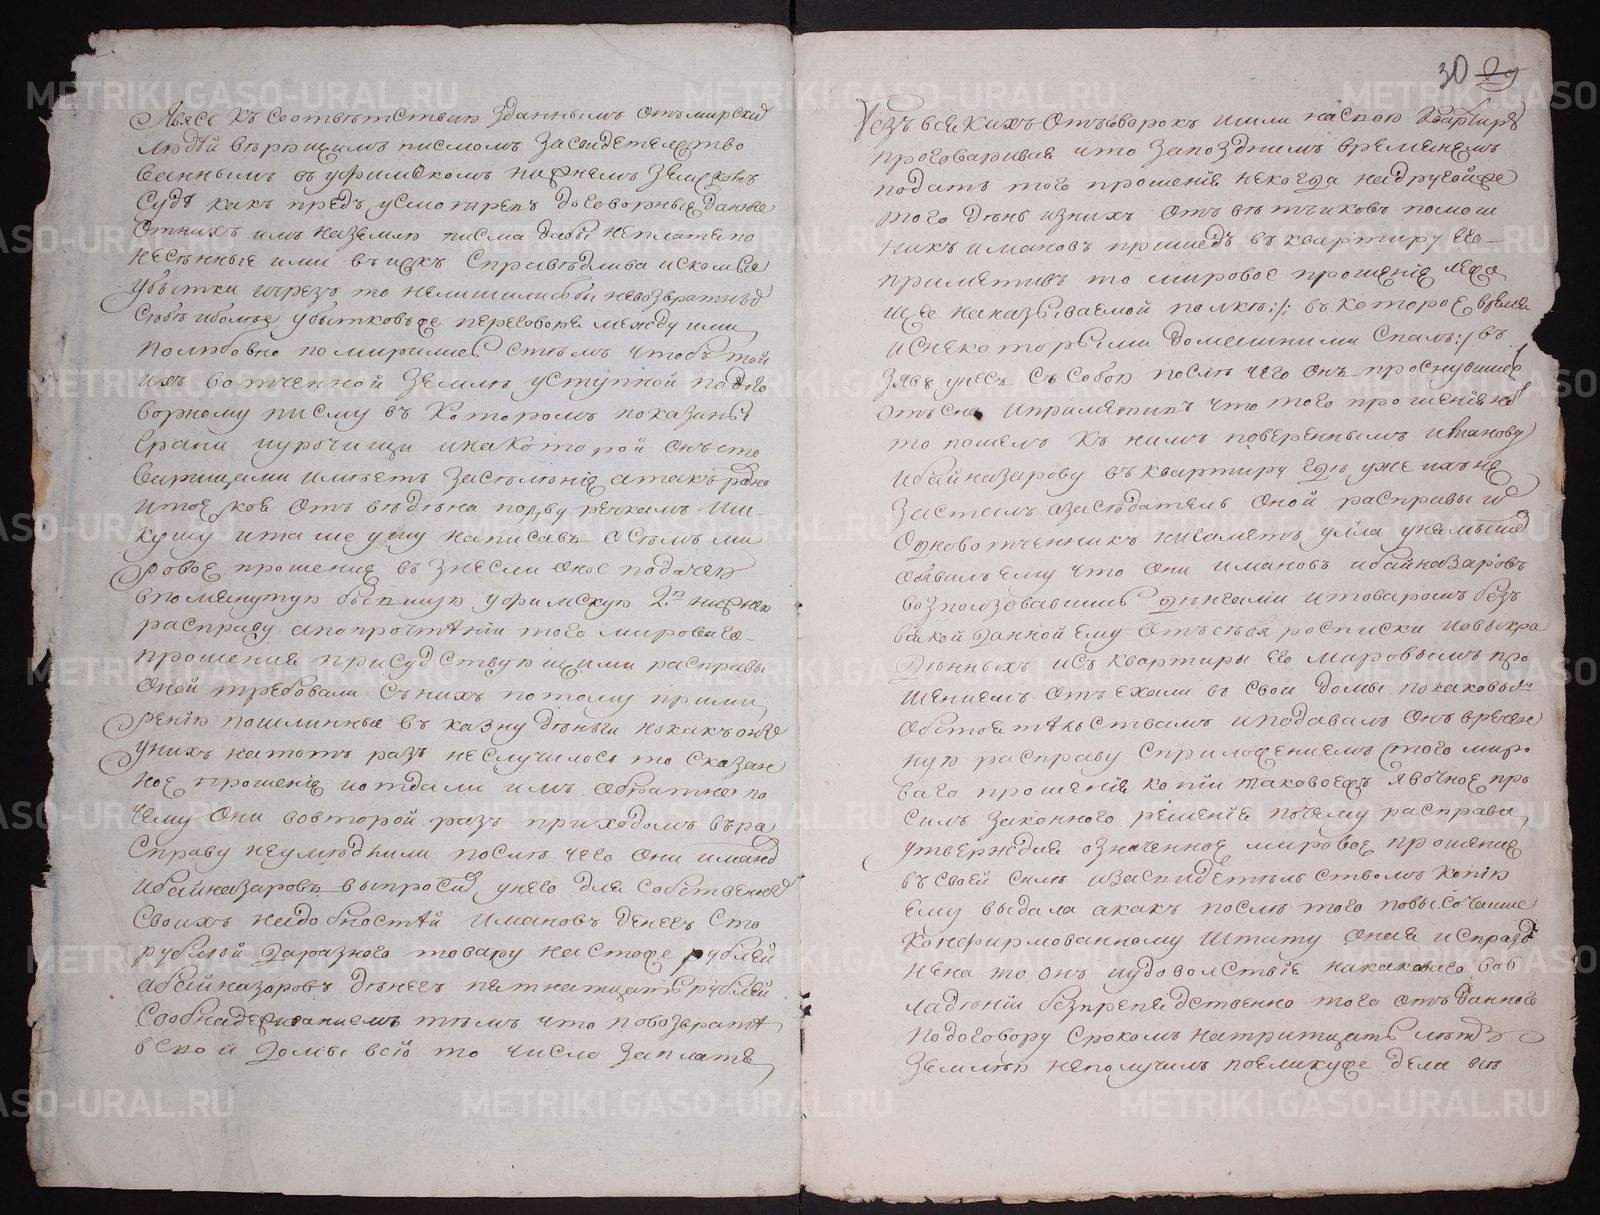 явясь къ соответствию зданнымъ отъ мирскихъ
людей верющимъ писмомъ засвидетелство
ваннымъ въ уфимскомъ нижнемъ земскомъ
суде какъ предъ усмотрелъ договорные данные
отнихъ имъ наземлю писма дабы неплатя по
несенные ими въ искъ справедлива искомые
убытки чрезъ то нелишилисбы невозвратныхъ
себе иболее убытковъже переговоря между ими
полюбовно помирились стемъ чтобъ той
ихъ вотченной земле уступной подого
ворному писму въ которомъ показаны
грани иурочищи инакоторой онъ сто
варищами имеетъ заселение атакъ равно
итое кое отъ
кушу итамеушу написавъ осемъ ми
ровое прошение въ знесли оное подачею
впомянутую бывшую уфимскую 2ю нижнюю
расправу апопрочтении того мироваго
прошения присудствующими расправы
оной требовали съ нихъ потому прими
рению пошлинные въ казну деньги нокакъ оныхъ
унихъ натотъ разъ неслучилось то сказан
ное прошение иотдали имъ обратно по
чему они вовторой разъ приходомъ въ ра
справу неумедлили после чего они имановъ
ибайназаровъ выпросили унего для собственныхъ
своихъ надобностей имановъ денегъ сто
рублей даразного товару настоже рублей
абайназаровъ денегъ пятнатцать рублей
собнадеживаниемъ темъ что повозврате
всвои домы всю то число заплатя
30 29
безъ всякихъ отъговорокъ ишли насвою квартиру
проговаривая что запозднимъ временемъ
подать того прошения некогда надругойже
того день изнихъ отъ ответчиковъ помощ
никъ имановъ пришедъ въ квартиру его
приметивъ то мировое прошение лежа
щее наказываемой полке :/: въ которое время
иснекоторыми домашними спалъ :/ во
зявъ унесъ съ собою после чего онъ проснувшись
отъ сна иприметилъ что того прошения нетъ
то пошелъ къ нимъ повереннымъ иманову
ибайназарову въ квартиру где уже ихъ не
засталъ азаседатель оной расправы и
одновотченникъ нигаметъ уйла
объявилъ ему что они имановъ ибайназаровъ
возползовавшись деньгами итоваромъ безъ
всякой данной ему отъ себя росписки ивыкра
денныхъ исъ квартиры его мировымъ про
шениемъ отъехали въ свои домы покаковымъ
обстоятельствамъ иподавалъ онъ вреч
ную расправу сприложениемъ того миро
ваго прошения копии таковоежъ явочное про
силъ законного решения почему расправа
утверждая означенное мировое прошение
въ своей силе изасвидетельствомъ копию
ему выдала акакъ после того повысочайше
конфирмованному штату оная испразд
нена то онъ иудоволствие никакаго вов
ладении безпрепядственно того отъданного
подоговору срокомъ натритцать летъ
землею неполучилъ поеликуже дела въ